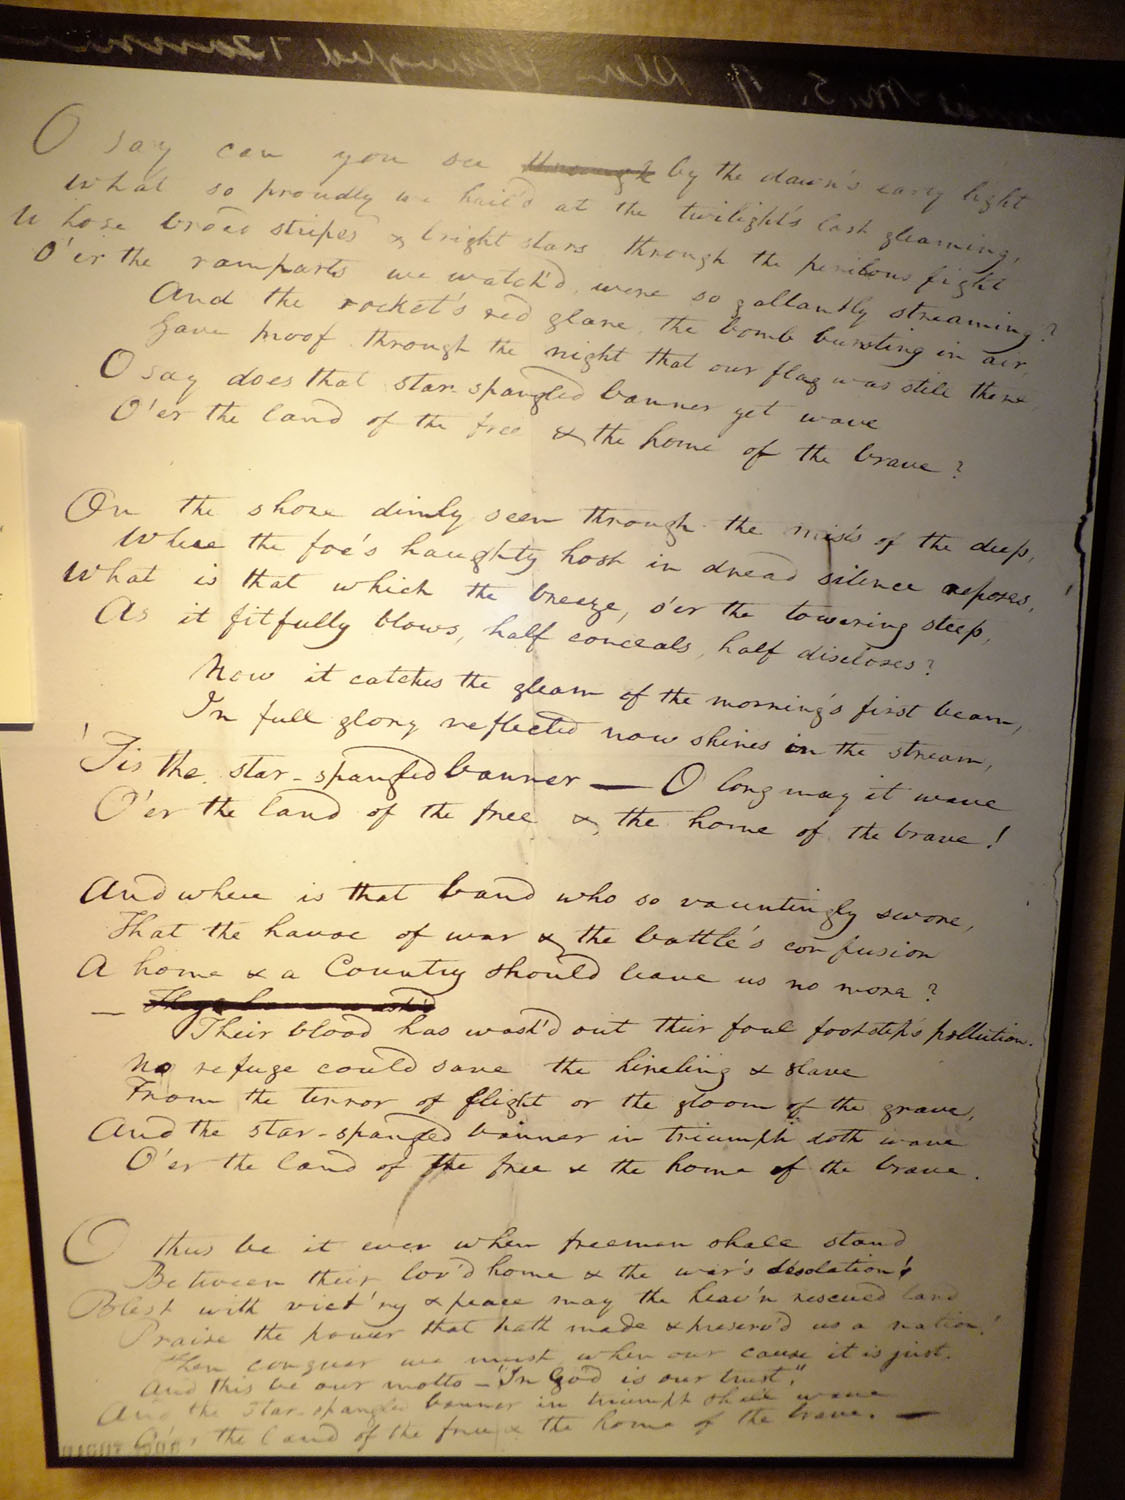 O say can you see ~~through~~ by the dawn's early light
What so proudly we hail'd at the twilight's last gleaming,
Whose broad stripes & bright stars through the perilous fight
O'er the ramparts we watch'd, were so gallantly streaming?
And the rocket's red glare, the bomb bursting in air,
Gave proof through the night that our flag was still there,
O say does that star-spangled banner yet wave
O'er the land of the free & the home of the brave?
On the shore dimly seen through the mists of the deep,
Where the foe's haughty host in dread silence reposes,
What is that which the breeze, o'er the towering steep,
As it fitfully blows, half conceals, half discloses?
Now it catches the gleam of the morning's first beam,
In full glory reflected now shines in the stream,
'Tis the star-spangled banner — O long may it wave
O'er the land of the free & the home of the brave!
And where is that band who so vauntingly swore,
That the havoc of war & the battle's confusion
A home & a Country should leave us no more?
—
Their blood has wash'd out their foul footstep's pollution.
No refuge could save the hireling & slave
From the terror of flight or the gloom of the grave,
And the star-spangled banner in triumph doth wave
O'er the land of the free & the home of the brave.
O thus be it ever when freemen shall stand
Between their lov'd home & the war's desolation!
Blest with vict'ry & peace may the heav'n rescued land
Praise the power that hath made & preserv'd us a nation!
Then conquer we must, when our cause it is just,
And this be our motto — "In God is our trust,"
And the star-spangled banner in triumph shall wave
O'er the land of the free & the home of the brave. —